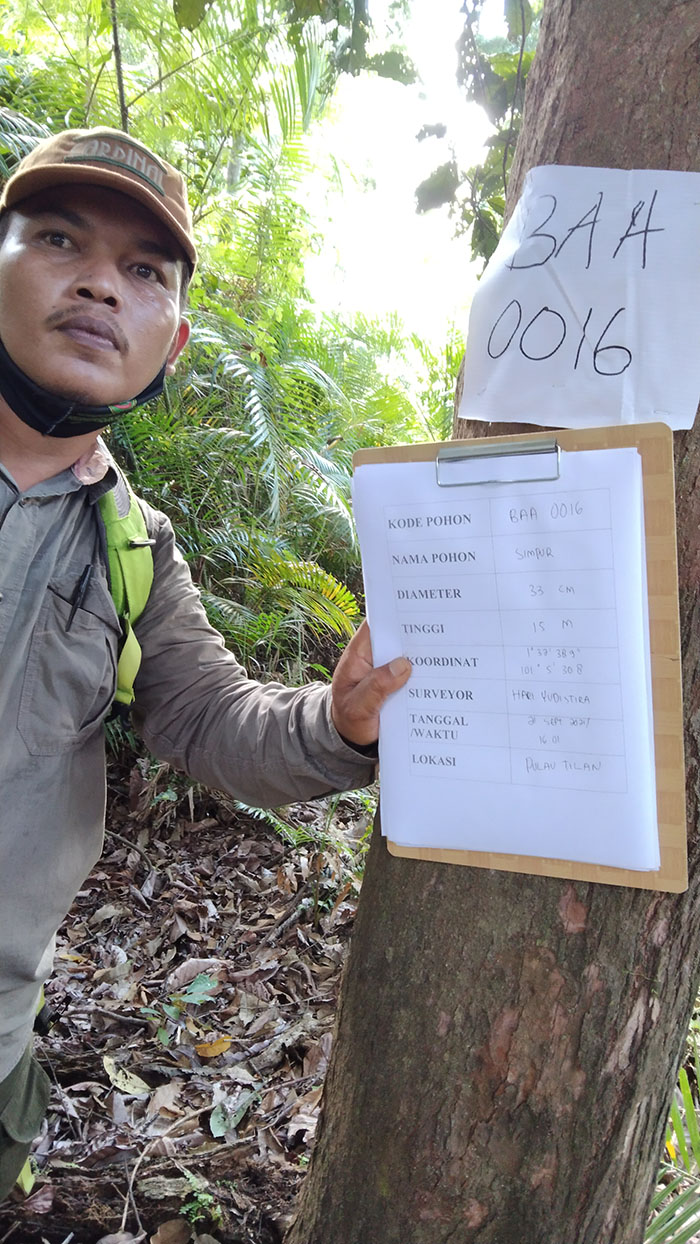 CARDINAL
BAA
0016
KODE POHON BAA 0016
NAMA POHON SIMPUR
DIAMETER 33 CM
TINGGI 15 M
KOORDINAT 1° 37' 38.9"
101° 5' 30.8
SURVEYOR HARI YUDISTIRA
TANGGAL SEPT 2021
/WAKTU 16.01
LOKASI PULAU TILAN